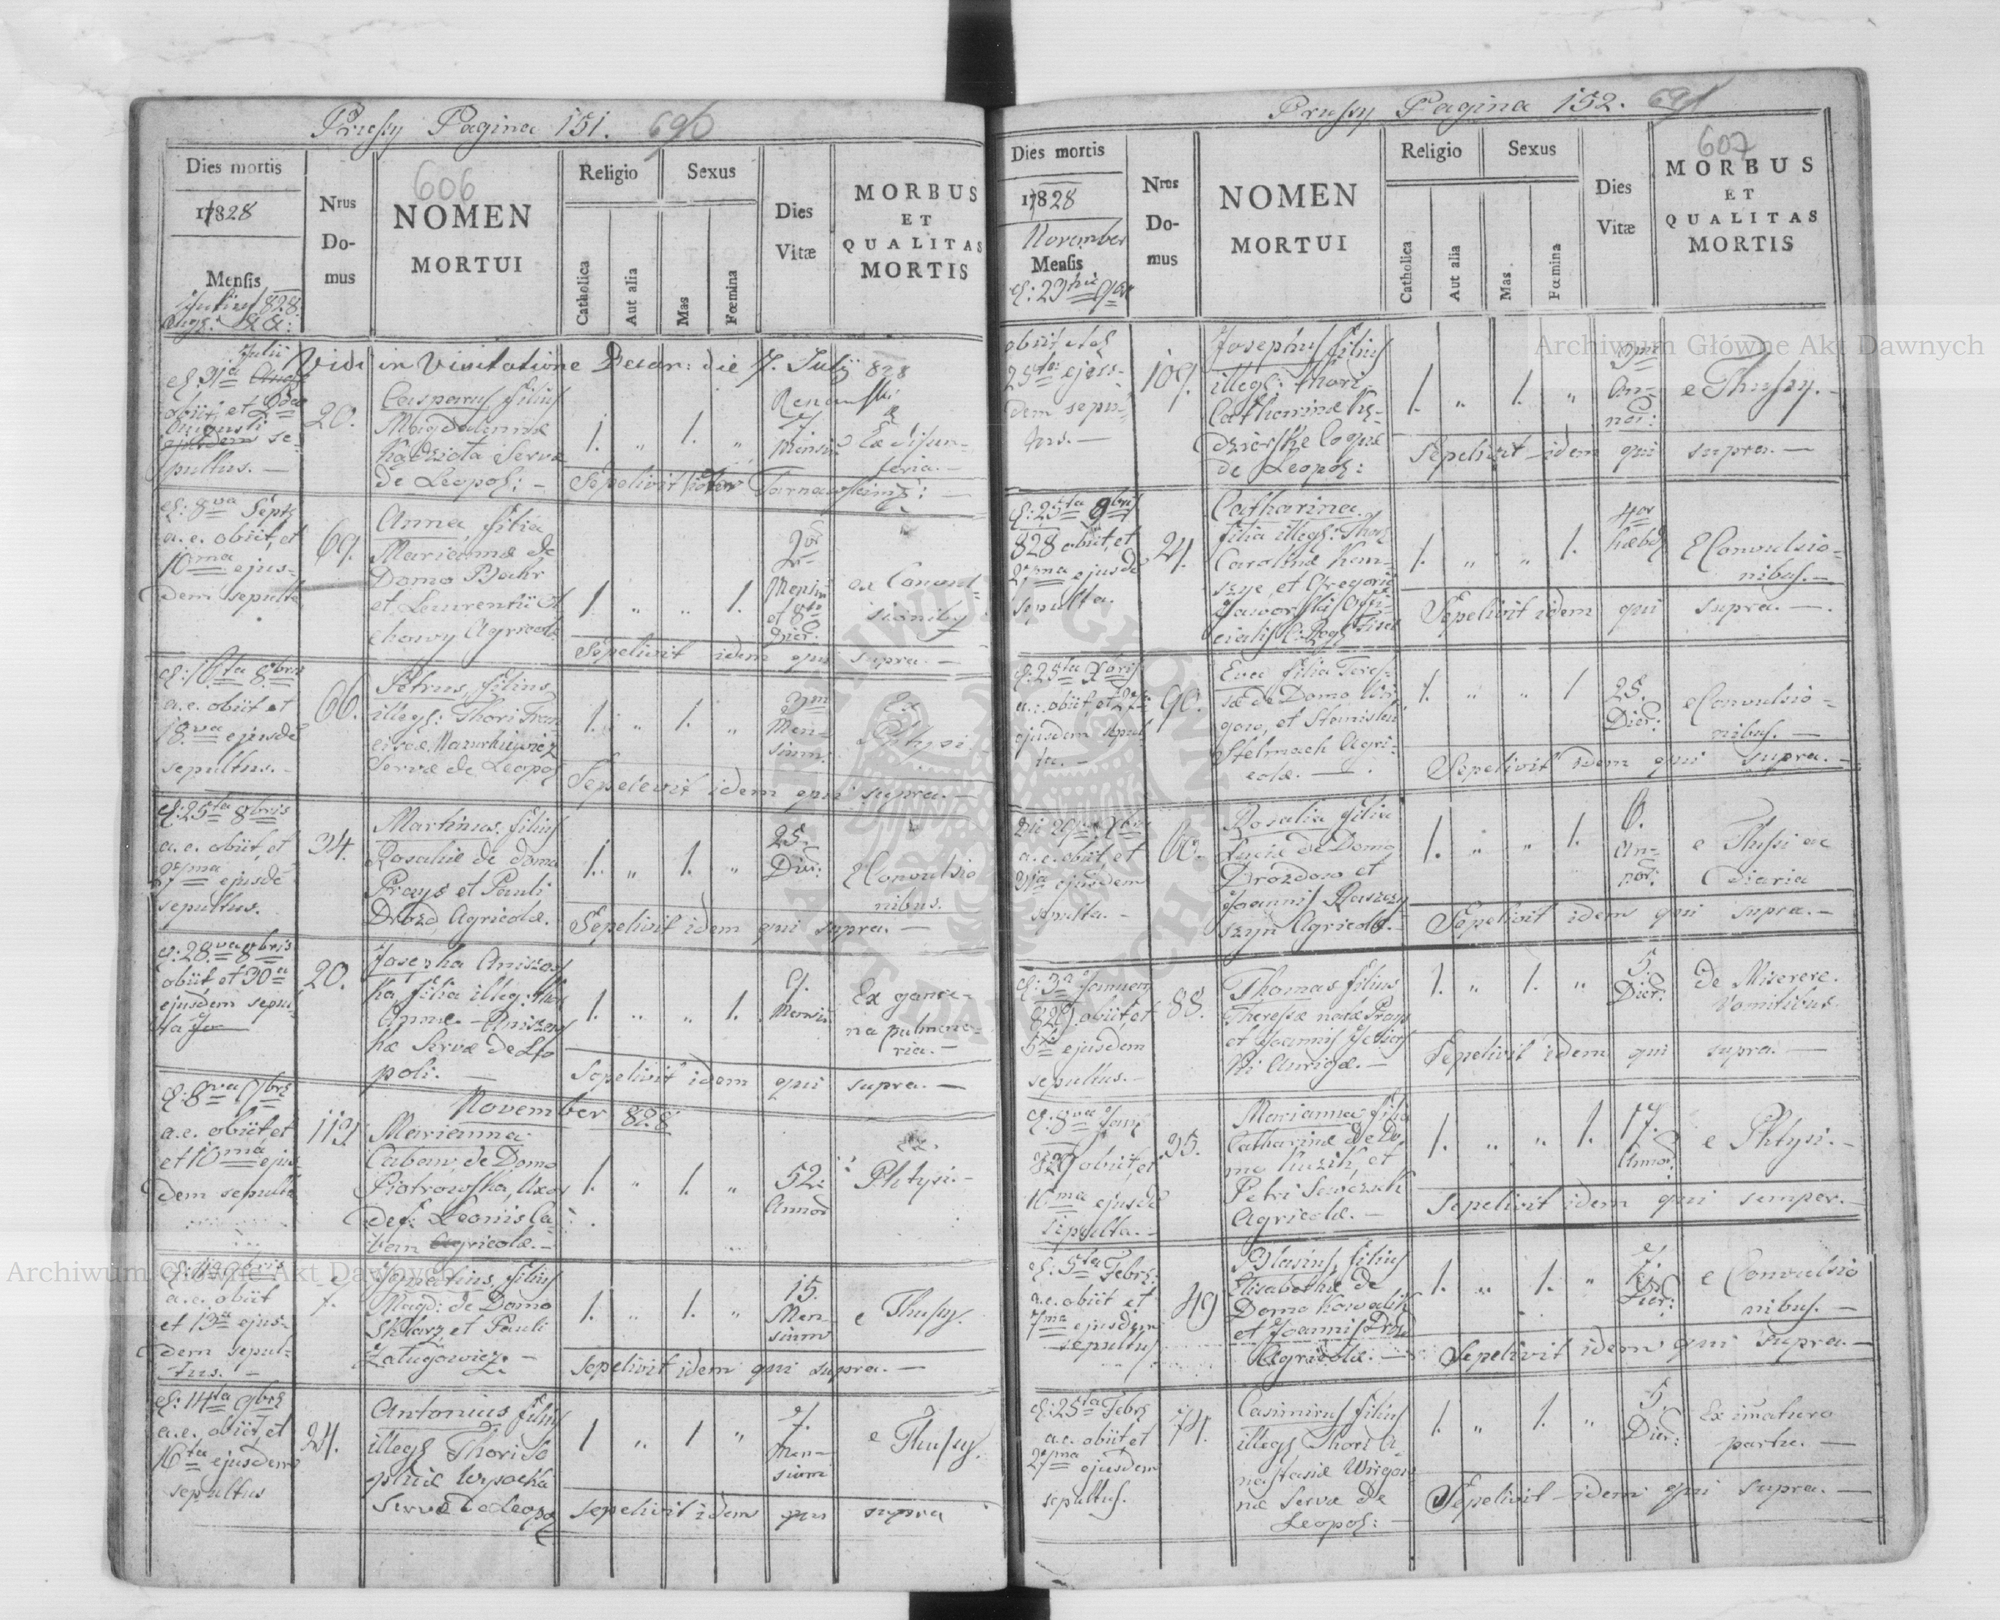 Prussy Pagina 151. 690
606
Dies mortis
1828
Mensis
Julius 828
Nrus Domus
NOMEN
MORTUI
Religio
Catholica
Aut alia
Sexus
Mas
Fœmina
Dies
Vitæ
MORBUS
ET
QUALITAS
MORTIS
Vidi in Visitatione Decan: die 7. Julij 828
Julii
d: 31a
obiit, et 2da
Augusti
se-
pultus. —
20.
Casparus filius
Magdalenæ
Servæ
de Leopol: —
1. „ 1. „
7
Mensiū
Ex disun-
teria. —
Sepelivit
d: 8va Septr
a. c. obiit, et
10ma ejus-
dem sepulta
69.
Anna, filia
Mariannæ de
Domo
et Laurentii
Agricolæ
1. „ „ 1.
2or
Mensiū
et 8to
Dier:
ex Convul-
sionibȝ
Sepelivit idem qui supra. —
d: 16ta 8bris
a. c. obiit et
18va ejusdē
sepultus. —
66.
Petrus, filius
illegi: Thori Fran-
ciscæ Mazurkiewicz
Servæ de Leopol
1. „ 1. „
3um
Men-
sium.
Ex
Phtysi
Sepelevit idem qui supra. —
d: 25ta 8bris
a. c. obiit, et
27ma ejusdē
sepultus.
34.
Martinus, filius
Rosaliæ de domo
Prays et Pauli
Drozd, Agricolæ.
1. „ 1. „
25.
Dier:
E Convulsio
nibus.
Sepelivit idem qui supra. —
d: 28va 8bris
obiit, et 30a
ejusdem sepul-
ta
20.
Josepha Aniszew
ka filia illeg: thor
Annæ Aniszews
kæ Servæ de Leo
poli. —
1. „ „ 1.
9.
Mensiū
Ex gangre-
na pulmona-
ria. —
Sepelivit idem qui supra. —
November 828
d: 8va 9bris
a. c. obiit et
et 10ma ejus-
dem sepulta
112
Marianna
Caban, de Domo
Piotrowska, Uxor
def: Leonis Ca-
ban Agricolæ. —
1. „ 1. „
52.
Annorū
Ex
Phtysi. —
a. c. obiit
et 13a ejus-
dem sepul-
tus. —
7.
Ignatius, filius
Magd: de Domo
Sklarz, et Pauli
Załugowicz. —
1. „ 1. „
15.
Men-
sium
e Thussy.
Sepelivit idem qui supra. —
d: 14ta 9bris
a. c. obiit, et
16ta ejusdem
sepultus
24.
Antonius filius
illegi Thori
Servæ de Leopol
1 „ 1 „
7.
Men-
sium
e Thussy.
Sepelivit idem qui supra
Prussy Pagina 152. 691
607
Dies mortis
1828
November
Mensis
Nros Domus
NOMEN
MORTUI
Religio
Catholica
Aut alia
Sexus
Mas
Fœmina
Dies
Vitæ
MORBUS
ET
QUALITAS
MORTIS
25ta ejus-
dem sepul-
tus. —
109.
Josephus filius
illegi: thori
Catharinæ
de Leopol:
1. „ 1. „
3um
An-
nor:
e Thussy. —
Sepelivit idem qui supra. —
d: 25ta 9bris
828 obiit, et
27ma ejusdē
sepulta.
24.
Catharina
filia illegi: Thori
Carolinæ
et Gregorii
Jaworski Offi-
cialis
1. „ „ 1.
4or
hebd
E Convulsio-
nibus. —
Sepelivit idem qui supra. —
d: 25ta Xbris
a. c. obiit, et 27ma
ejusdem sepul
ta. —
90.
Eva filia There-
siæ de Domo
et Stanislai
Stelmach Agri-
colæ. —
1. „ „ 1
25.
Dier:
e Convulsio-
nibus. —
Sepelivit idem qui supra. —
Die 29na Xbris
a. c. obiit, et
31a ejusdem
sepulta. —
60.
Rosalia filia
Luciæ de Domo
Drozdow et
Joannis
Agricolæ. —
1. „ „ 1.
6.
An-
nor:
e Thussi ac
Diaria
Sepelivit idem qui supra. —
d: 3a January
829 obiit, et
5ta ejusdem
sepultus. —
88.
Thomas filius
Theresiæ natæ Prays
et Joannis
Aurigæ. —
1. „ 1. „
5.
Dier:
de Miserere.
Vomitibus.
Sepelivit idem qui supra. —
d: 8va Janr
829 obiit, et
10ma ejusdē
sepulta. —
35.
Marianna filia
Catharinæ de Do-
mo Kuzik, et
Petri
Agricolæ. —
1. „ „ 1.
17.
Annor:
e Phtysi. —
Sepelivit idem qui semper. —
d: 5ta Febr:
a. c. obiit et
7ma ejusdem
sepultus
49
Blasius, filius
Elisabethæ de
Domo Kowalik
et Joannis Drozd
Agricolæ. —
1. „ 1. „
7.
Dier:
e Convulsio
nibus. —
Sepelivit idem qui supra. —
d: 25ta Febr
a. c. obiit, et
27ma ejusdem
sepultus.
74.
Casimirus filius
illegi Thori A-
nastasiæ
Servæ de
Leopol: —
1. „ 1. „
5.
Dier:
Ex imaturo
partu. —
Sepelivit idem qui supra. —
Archiwum Główne Akt Dawnych
Archiwum Główne Akt Dawnych
ARCHIWUM GŁÓWNE AKT DAWNYCH